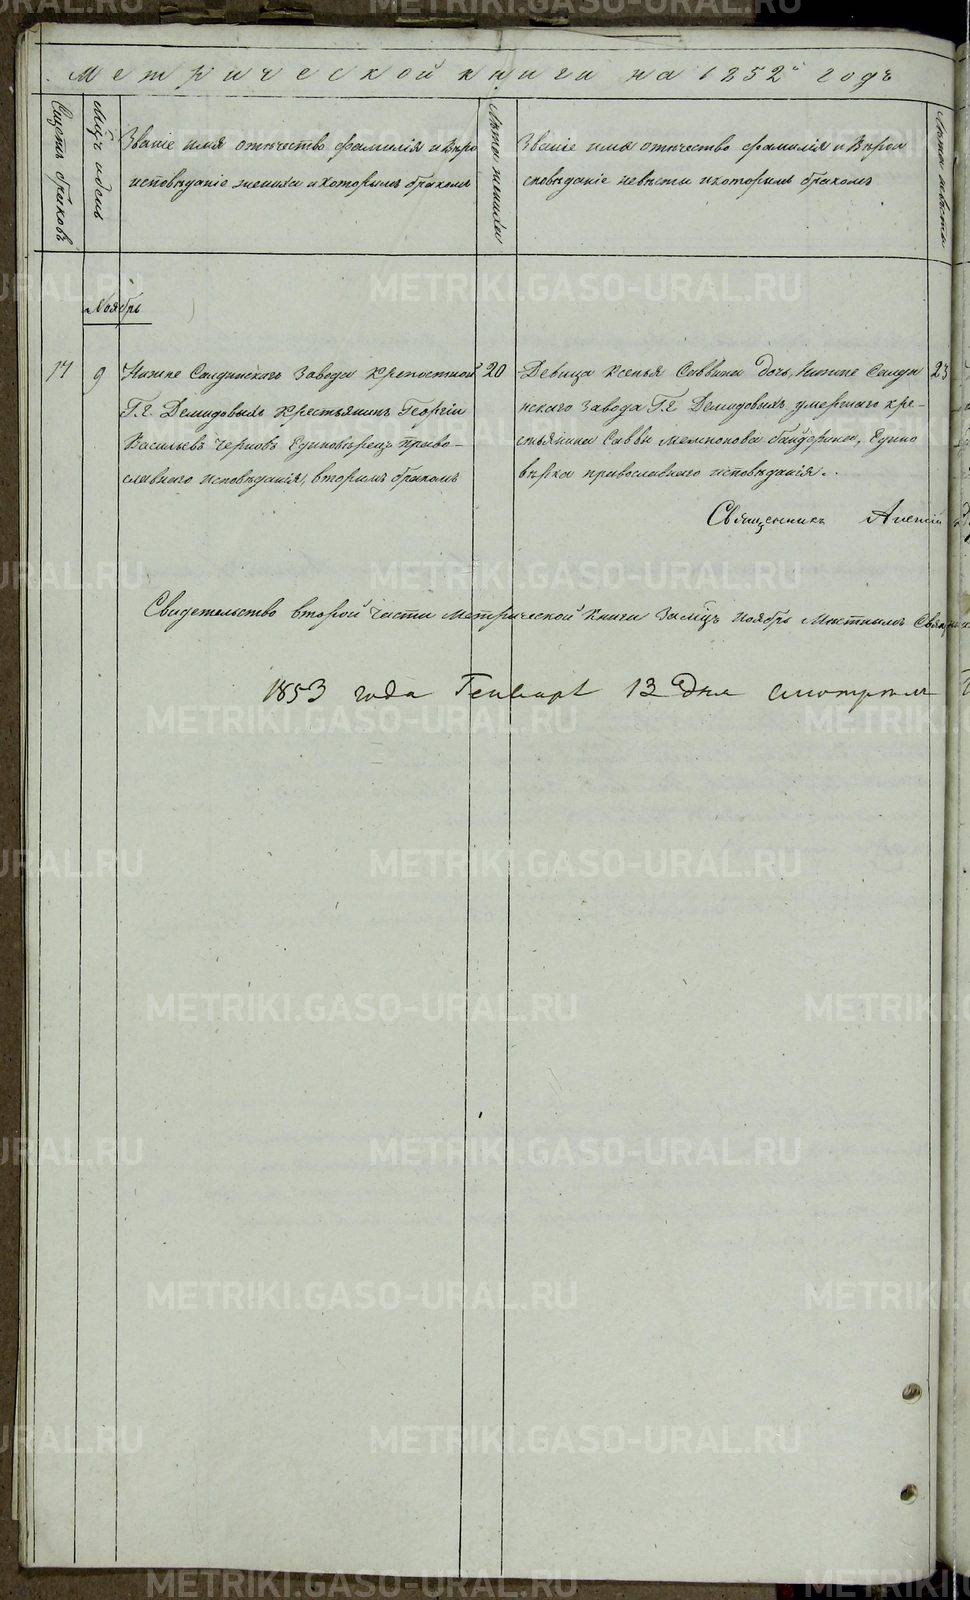 Метрической книги на 1852й годъ
Счетъ браковъ
Мцъ и день
Званіе имя отчество фамилія и Вѣро
исповѣданіе жениха и которымъ бракомъ
Лѣта жениха
Званіе имя отчество фамилія и Вѣрои
сповѣданіе невѣсты и которымъ бракомъ
Лѣта невѣсты
Ноябрь
9
Нижне Салдинскаго Завода Крепостной
Г.г. Демидовыхъ Крестьянинъ Георгій
Васильевъ Черновъ Единовѣрецъ право-
славнаго исповѣданія, вторымъ бракомъ
20
Девица Ксенья Саввина дочь Нижне Салди
нскаго Завода Г.г. Демидовыхъ умершаго кре-
стьянина Саввы Единo
вѣрка православнаго исповѣданія.
23
Священникъ
Свидетельство второй части Метрической Книги За мцъ Ноябрь
1853 года Генваря 13 Дня смотрелъ
METRIKI.GASO-URAL.RU